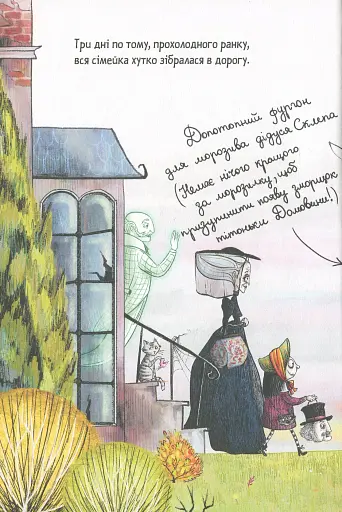 Три дні по тому, прохолодного ранку,
вся сімейка хутко зібралася в дорогу.
Допотопний фургон
для морозива дідуся Склепа
(Немає нічого кращого
за морозилку, щоб
призупинити появу зморщок
тітоньки Домовини!)